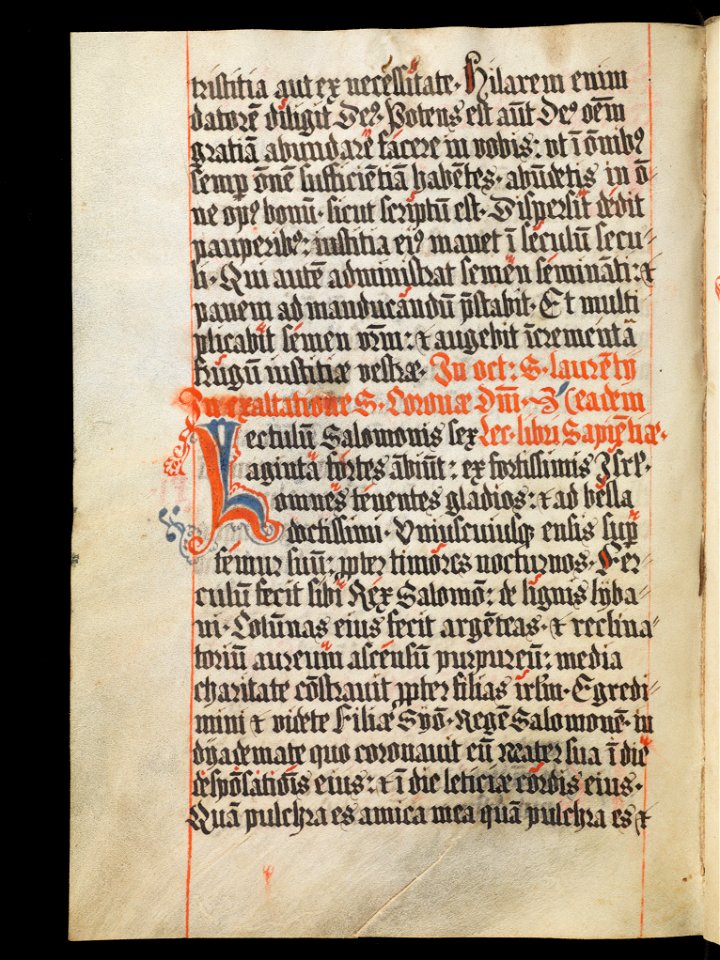 tristitia aut ex necessitate· Hilarem enim
datorē diligit Deꝰ· Potens est aūt Deꝰ oēm
gratiā abundare facere in vobis: ut ī ōnibꝰ
semp ōnē sufficiētiā habētes· abūdetis in ō-
ne opꝰ bonū· sicut scriptū est· Dispersit dedit
pauperibꝰ: iustitia eiꝰ manet ī seculū secu-
li· Qui autē administrat semen semināti: ⁊
panem ad manducandū p̄stabit· Et multi
plicabit semen vrm̄: ⁊ augebit īcrementa
frugū iustitiæ vestræ· In oct: S· laurētij
In exaltatione S· Coronæ Dm̄· eadem
Lectulū Salomonis sex Lec· libri Sapiētiæ·
aginta fortes ābiūt: ex fortissimis Isrl·
omnes tenentes gladios: ⁊ ad bella
doctissimi· Vniuscuiusqꝫ ensis sup̄
femur suū: ꝓpter timores nocturnos· Fer-
culū fecit sibi Rex Salomō: de lignis lyba
ni· Colūnas eius fecit argēteas· ⁊ reclina-
toriū aureum ascensū purpureū: media
charitate cōstravit ꝓpter filias ierl̄m· Egredi-
mini ⁊ videte Filiæ Syō· Regē Salomonē· in
dyademate quo coronauit eū mater sua ī die
despōsatiōis eius: ⁊ ī die leticiæ cordis eius·
Quā pulchra es amica mea quā pulchra es ⁊